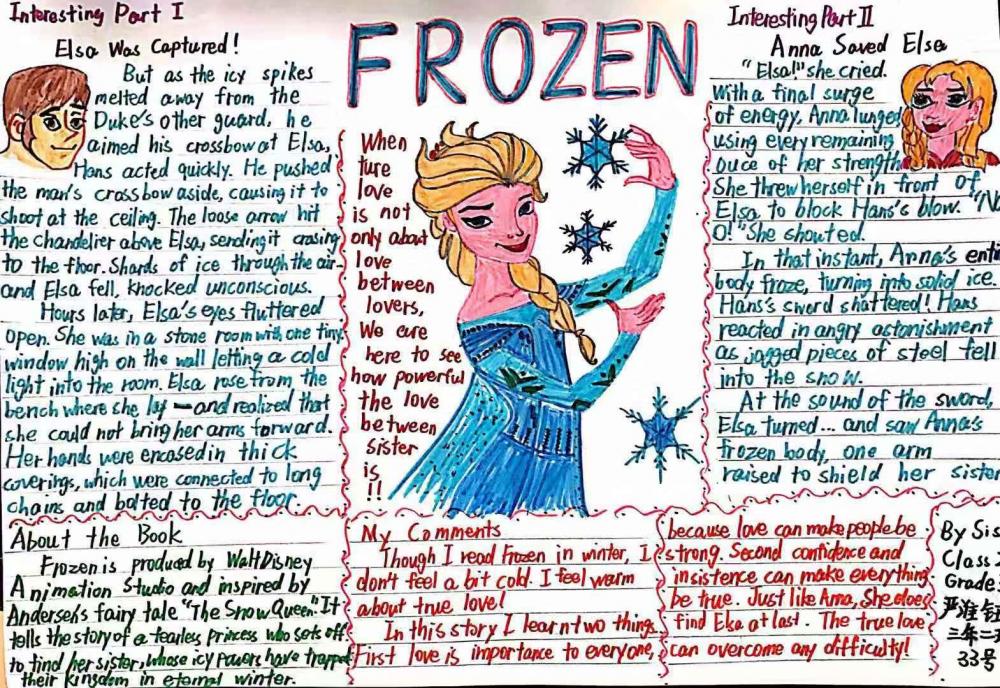 Interesting Part I
Elsa Was Captured!
But as the icy spikes
melted away from the
Duke's other guard, he
aimed his crossbow at Elsa,
Hans acted quickly. He pushed
the man's crossbow aside, causing it to
shoot at the ceiling. The loose arrow hit
the chandelier above Elsa, sending it crasing
to the floor. Shards of ice through the air
and Elsa fell, knocked unconscious.
Hours later, Elsa's eyes fluttered
open. She was in a stone room with one tiny
window high on the wall letting a cold
light into the room. Elsa rose from the
bench where she lay — and realized that
she could not bring her arms forward.
Her hands were encased in thick
coverings, which were connected to long
chains and bolted to the floor.
FROZEN
When
ture
love
is not
only about
love
between
lovers,
We are
here to see
how powerful
the love
between
sister
is
!!
Interesting Part II
Anna Saved Elsa
"Elsa!" she cried.
With a final surge
of energy, Anna lunged
using every remaining
ouce of her strength
She threw herself in front of
Elsa to block Hans's blow. "No
O!" She shouted.
In that instant, Anna's enti
body froze, turning into solid ice.
Hans's sword shattered! Hans
reacted in angry astonishment
as jagged pieces of steel fell
into the snow.
At the sound of the sword,
Elsa turned... and saw Anna's
frozen body, one arm
raised to shield her sister
About the Book
Frozen is produced by Walt Disney
Animation Studio and inspired by
Andersen's fairy tale "The Snow Queen". It
tells the story of a fearless princess who sets off
to find her sister, whose icy powers have trapped
their kingdom in eternal winter.
My Comments
Though I read Frozen in winter, I
don't feel a bit cold. I feel warm
about true love!
In this story I learnt two things.
First love is importance to everyone,
because love can make people be
strong. Second confidence and
insistence can make everything
be true. Just like Anna, She does
find Elsa at last. The true love
can overcome any difficulty!
By Sis
Class 2
Grade
严淮
三年二
33号